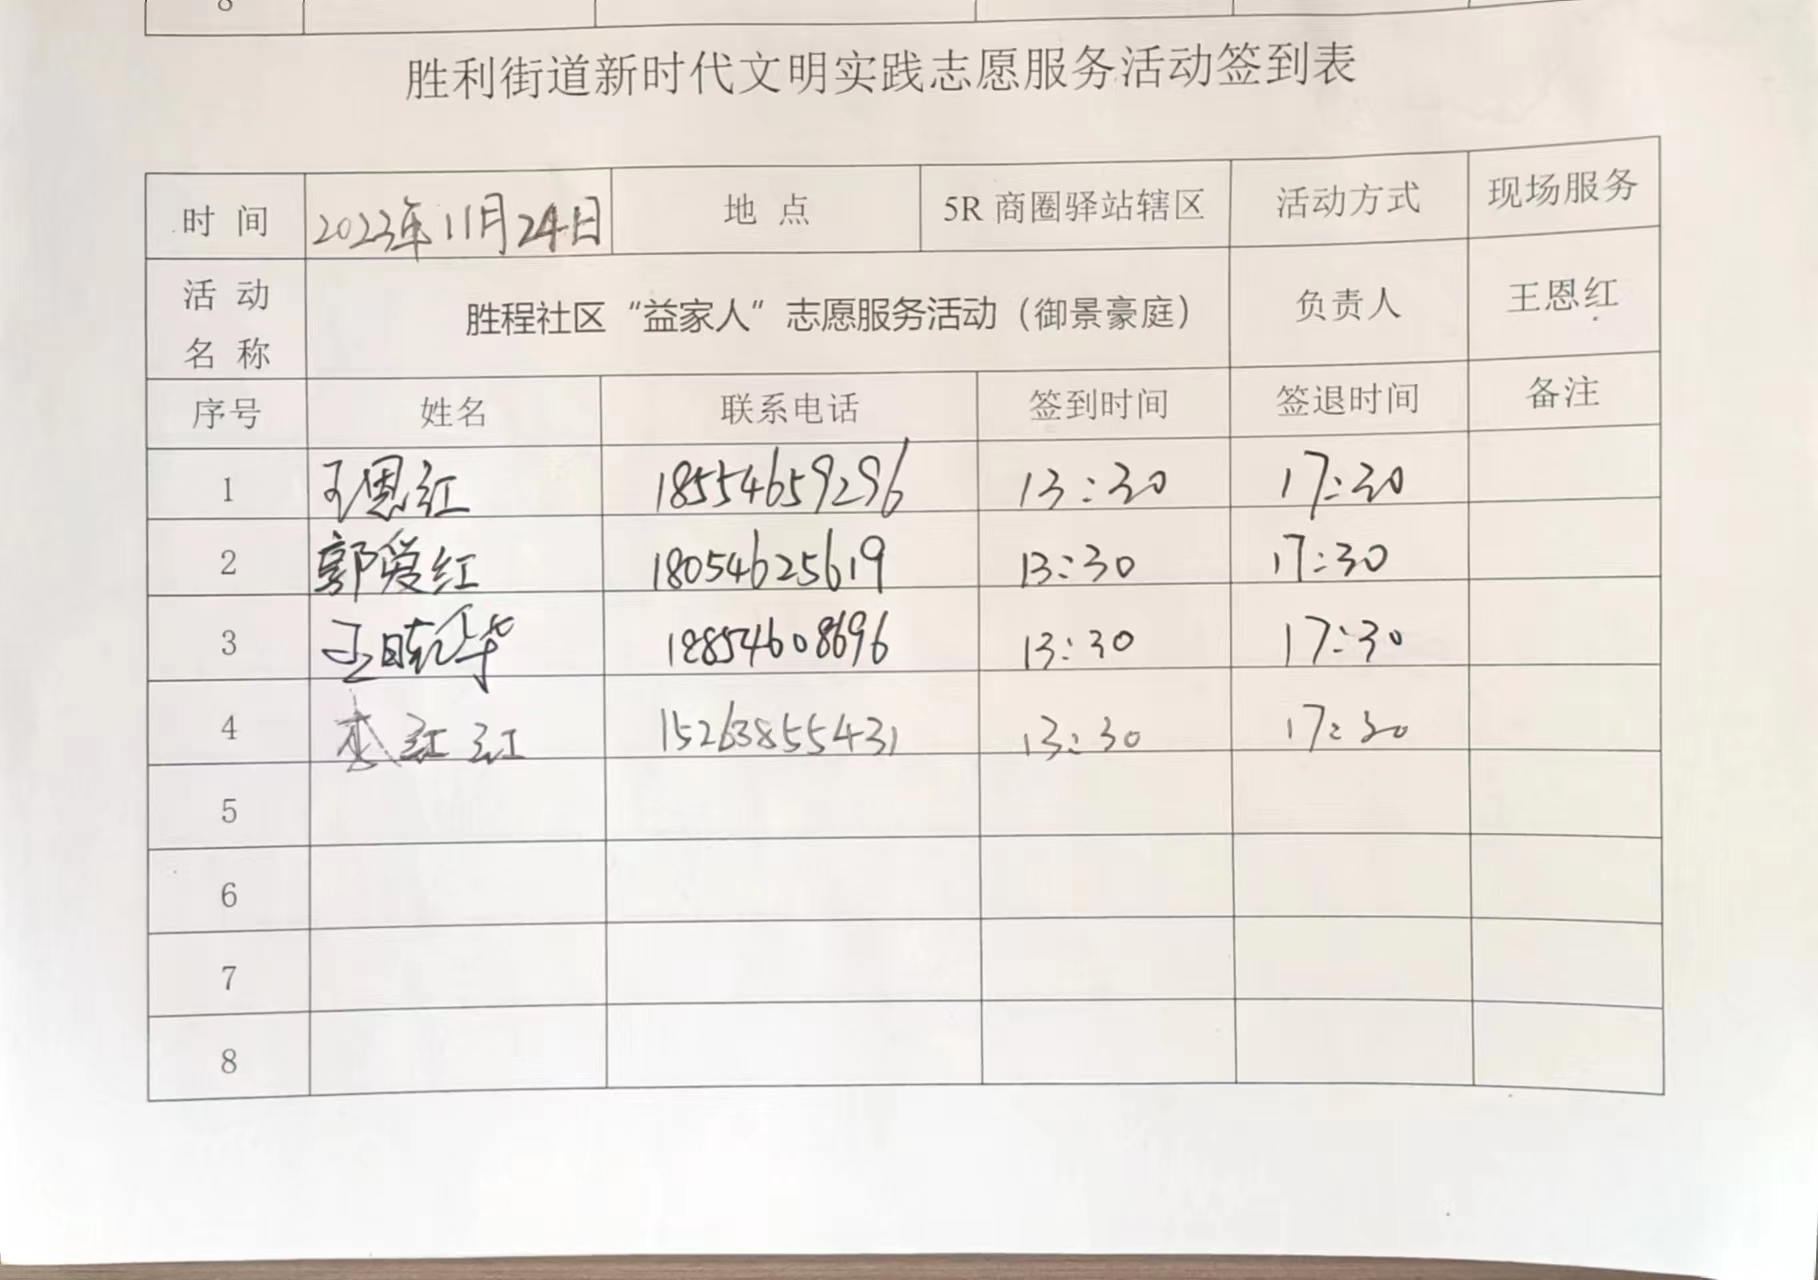 8
胜利街道新时代文明实践志愿服务活动签到表
时 间 2023年11月24日 地 点 5R 商圈驿站辖区 活动方式 现场服务
活 动 名 称 胜程社区“益家人”志愿服务活动（御景豪庭） 负责人 王恩红
序号 姓名 联系电话 签到时间 签退时间 备注
1 王恩红 18554659296 13:30 17:30
2 郭爱红 18054625619 13:30 17:30
3 王晓华 18854608696 13:30 17:30
4 李红红 15263855431 13:30 17:30
5
6
7
8